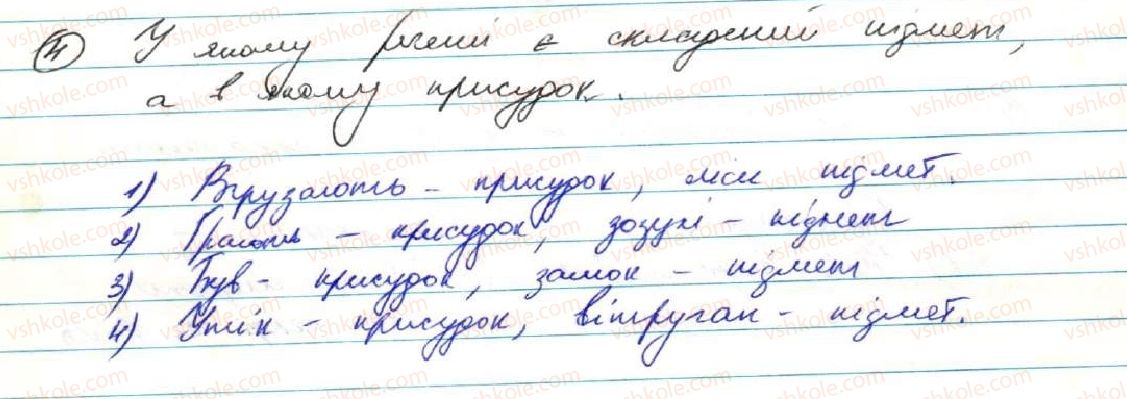 4) У якому реченні є складений підмет,
а в якому присудок.
1) Вгрузають – присудок, підмет.
2) Грають – присудок, зозулі – підмет
3) Був – присудок, замок – підмет
4) Утік – присудок, вітруган – підмет.